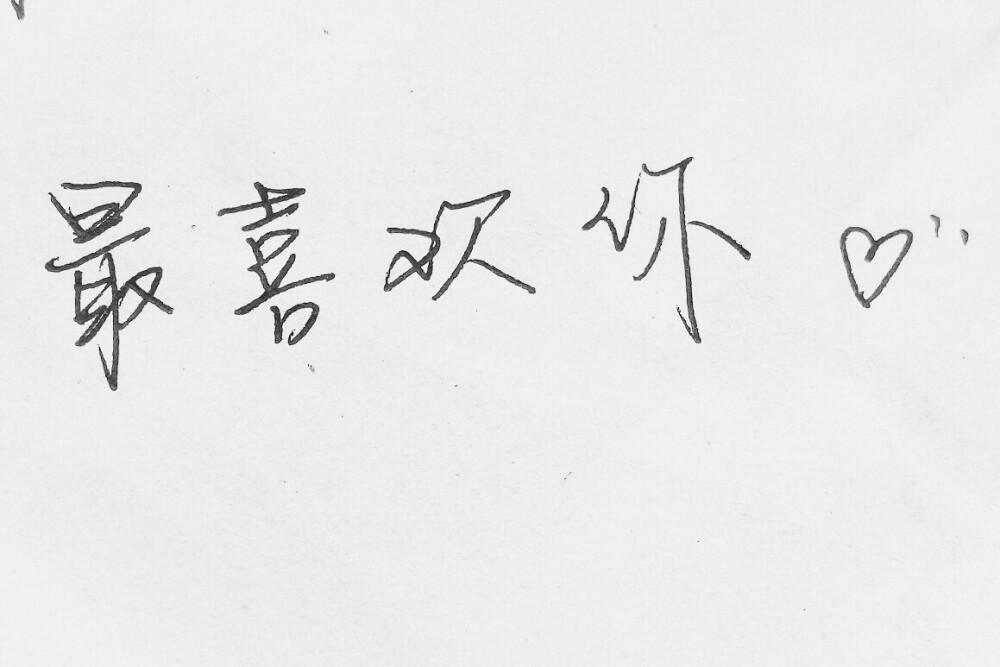 最喜欢你♡